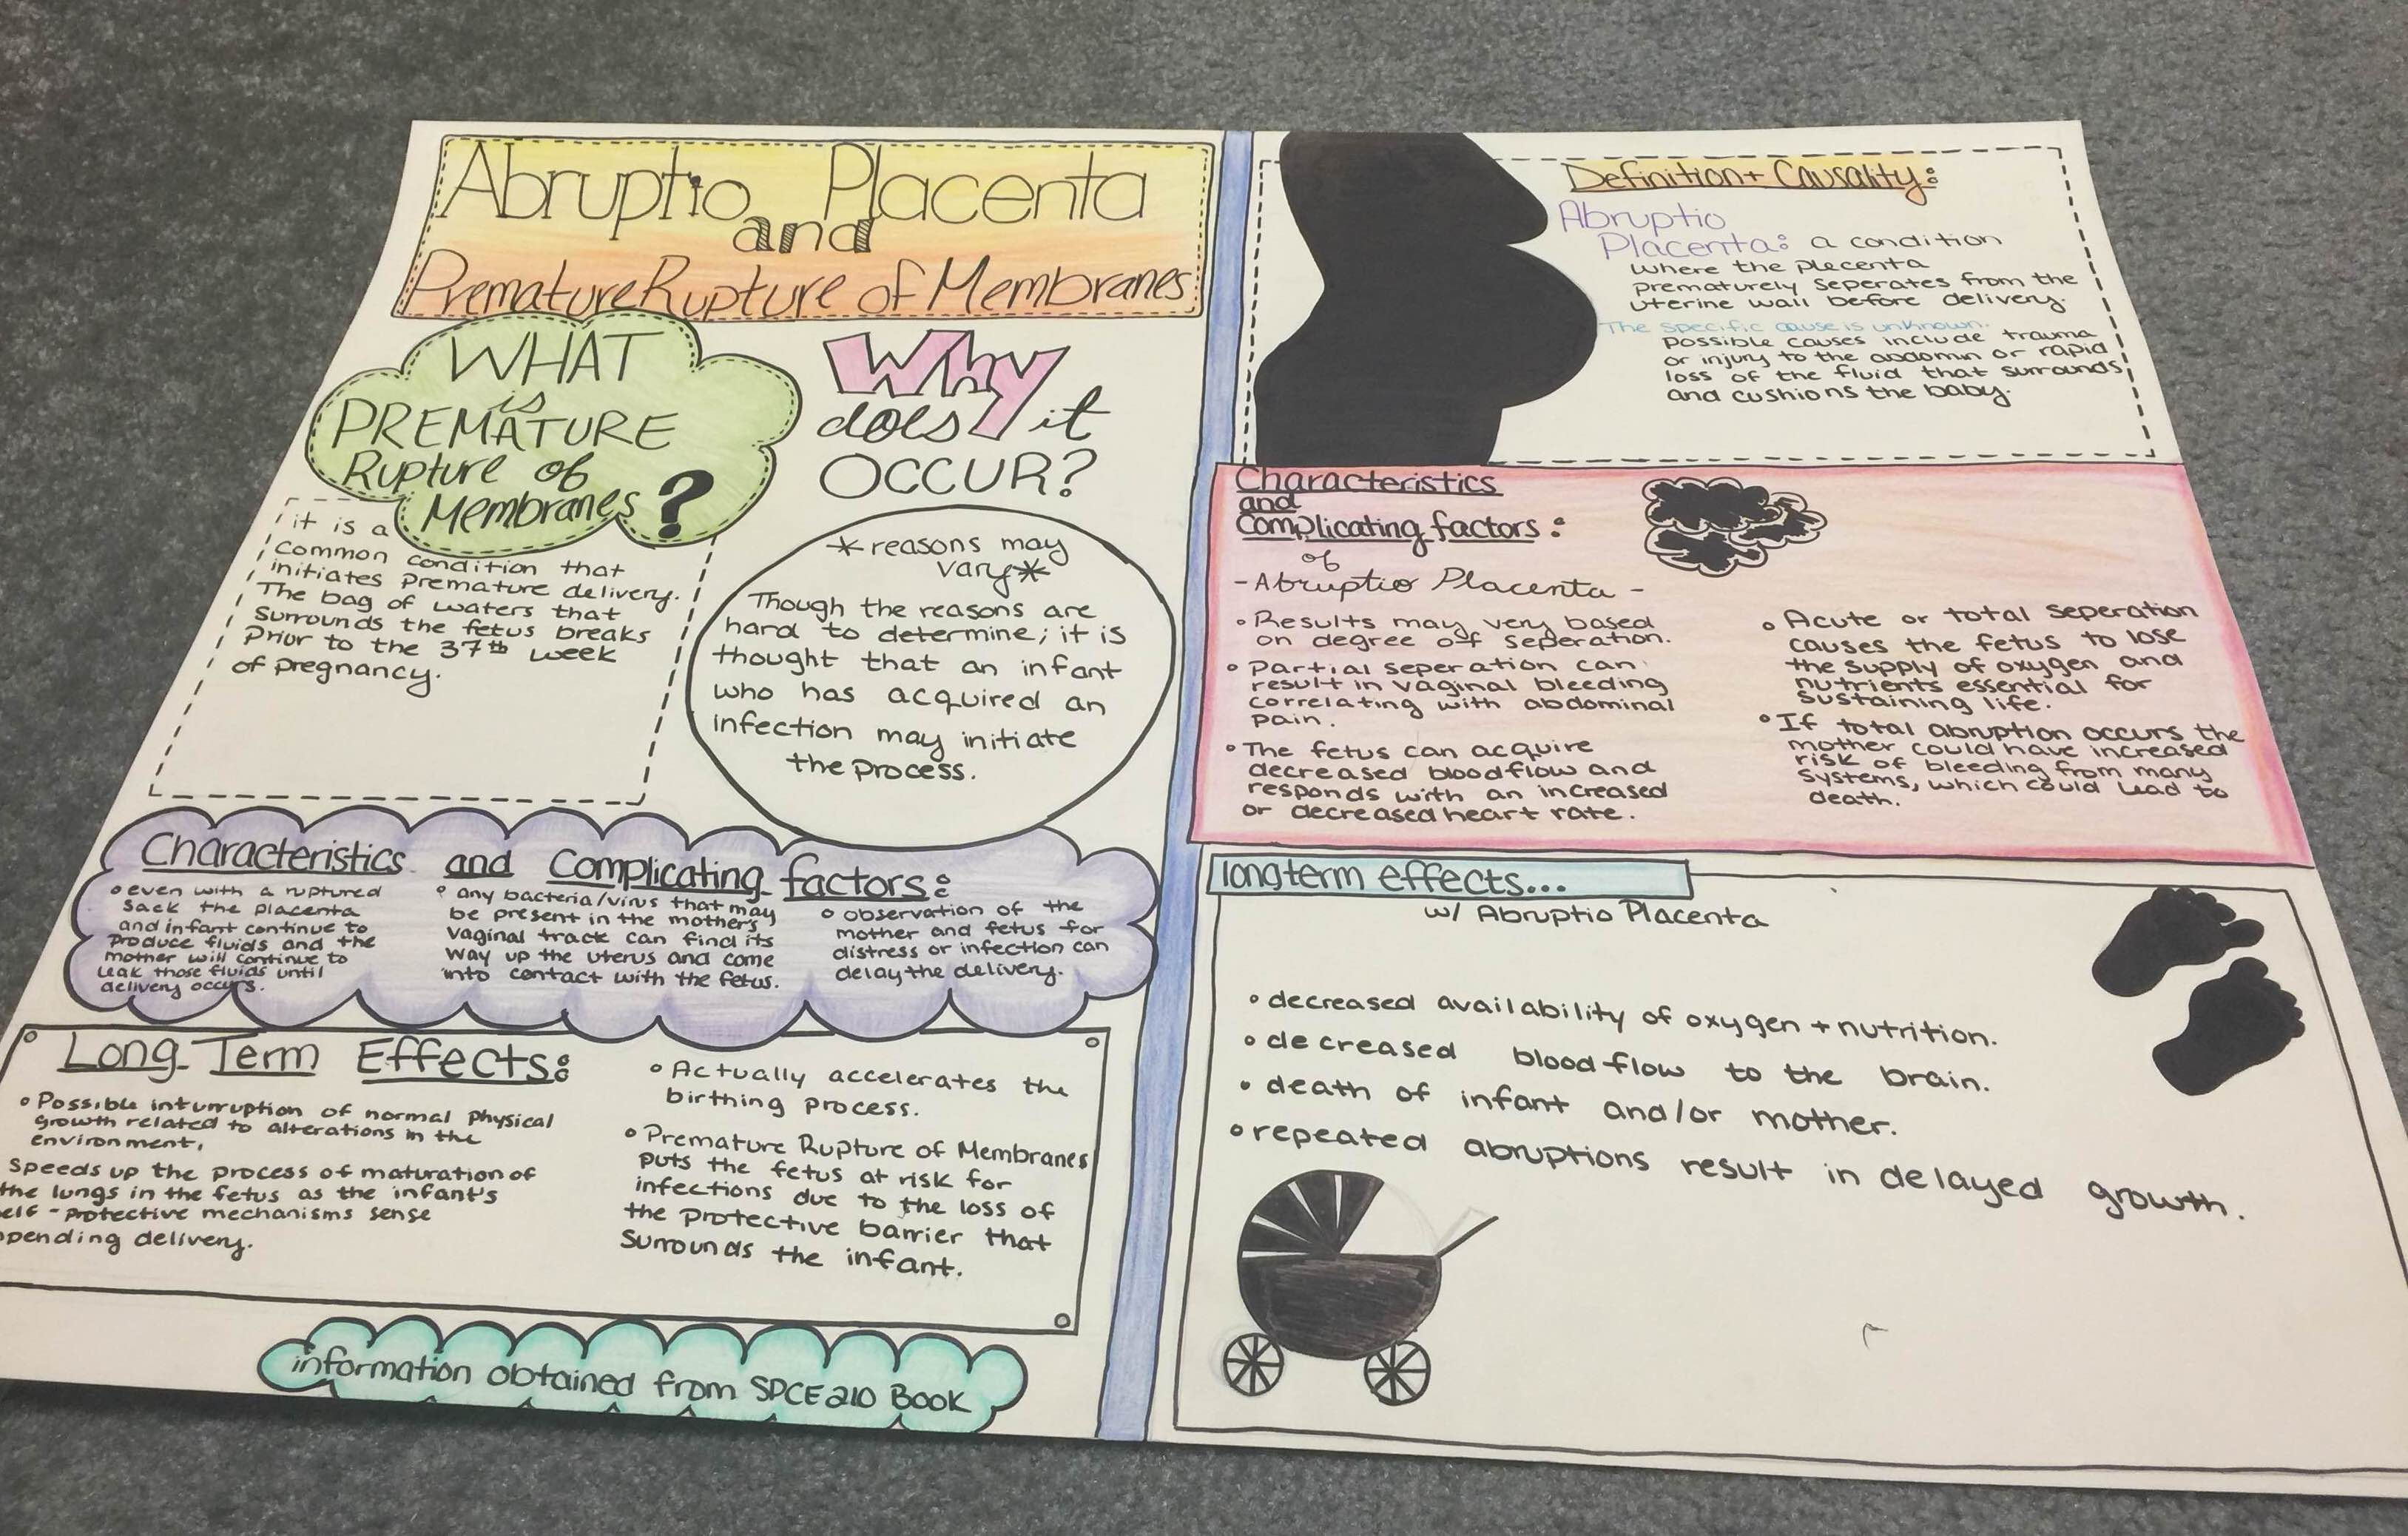 Abruptio Placenta
and
Premature Rupture of Membranes
WHAT
is
PREMATURE
Rupture of
Membranes ?
it is a
common condition that
initiates premature delivery.
The bag of waters that
surrounds the fetus breaks
prior to the 37th week
of pregnancy.
Why
does it
OCCUR?
*reasons may
vary*
Though the reasons are
hard to determine; it is
thought that an infant
who has acquired an
infection may initiate
the process.
Characteristics and Complicating factors:
• even with a ruptured
sack the placenta
and infant continue to
produce fluids and the
mother will continue to
leak those fluids until
delivery occurs.
• any bacteria/virus that may
be present in the mother's
vaginal track can find its
way up the uterus and come
into contact with the fetus.
• observation of the
mother and fetus for
distress or infection can
delay the delivery.
Long Term Effects:
• Possible inturruption of normal physical
growth related to alterations in the
environment.
Speeds up the process of maturation of
the lungs in the fetus as the infant's
elf-protective mechanisms sense
pending delivery.
• Actually accelerates the
birthing process.
• Premature Rupture of Membranes
puts the fetus at risk for
infections due to the loss of
the protective barrier that
surrounds the infant.
information obtained from SPCE 210 Book
Definition + Causality:
Abruptio
Placenta: a condition
where the plecenta
prematurely seperates from the
uterine wall before delivery.
The specific cause is unknown.
possible causes include trauma
or injury to the abdomin or rapid
loss of the fluid that surrounds
and cushions the baby.
Characteristics
and
Complicating factors:
of
- Abruptio Placenta -
• Results may very based
on degree of seperation.
• Partial seperation can
result in vaginal bleeding
correlating with abdominal
pain.
• The fetus can acquire
decreased bloodflow and
responds with an increased
or decreased heart rate.
• Acute or total seperation
causes the fetus to lose
the supply of oxygen and
nutrients essential for
sustaining life.
• If total abruption occurs the
mother could have increased
risk of bleeding from many
systems, which could lead to
death.
longterm effects...
w/ Abruptio Placenta
• decreased availability of oxygen + nutrition.
• decreased bloodflow to the brain.
• death of infant and/or mother.
• repeated abruptions result in delayed growth.